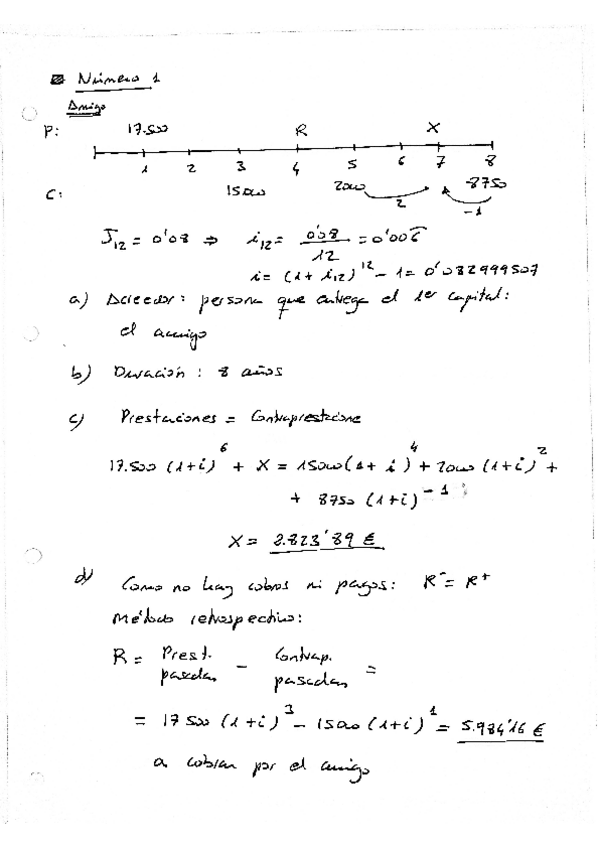 Número 1
Amigo
P: 17.500 R X
1 2 3 4 5 6 7 8
C: 15000 2000 8750
2 -1
J12 = 0'08 ⇒ i12 = 0'08 / 12 = 0'006
i = (1 + i12)^12 - 1 = 0'082999507
a) Acreedor: persona que entrega el 1er capital:
el amigo
b) Duración: 8 años
c) Prestaciones = Contraprestacione
17.500 (1+i)^6 + X = 15000 (1+i)^4 + 2000 (1+i)^2 +
+ 8750 (1+i)^-1
X = 2.823'89 €
d) Como no hay cobros ni pagos: R^- = R^+
Método retrospectivo:
R = Prest. pasadas - Contrap. pasadas =
= 17500 (1+i)^3 - 15000 (1+i)^1 = 5.984'16 €
a cobrar por el amigo